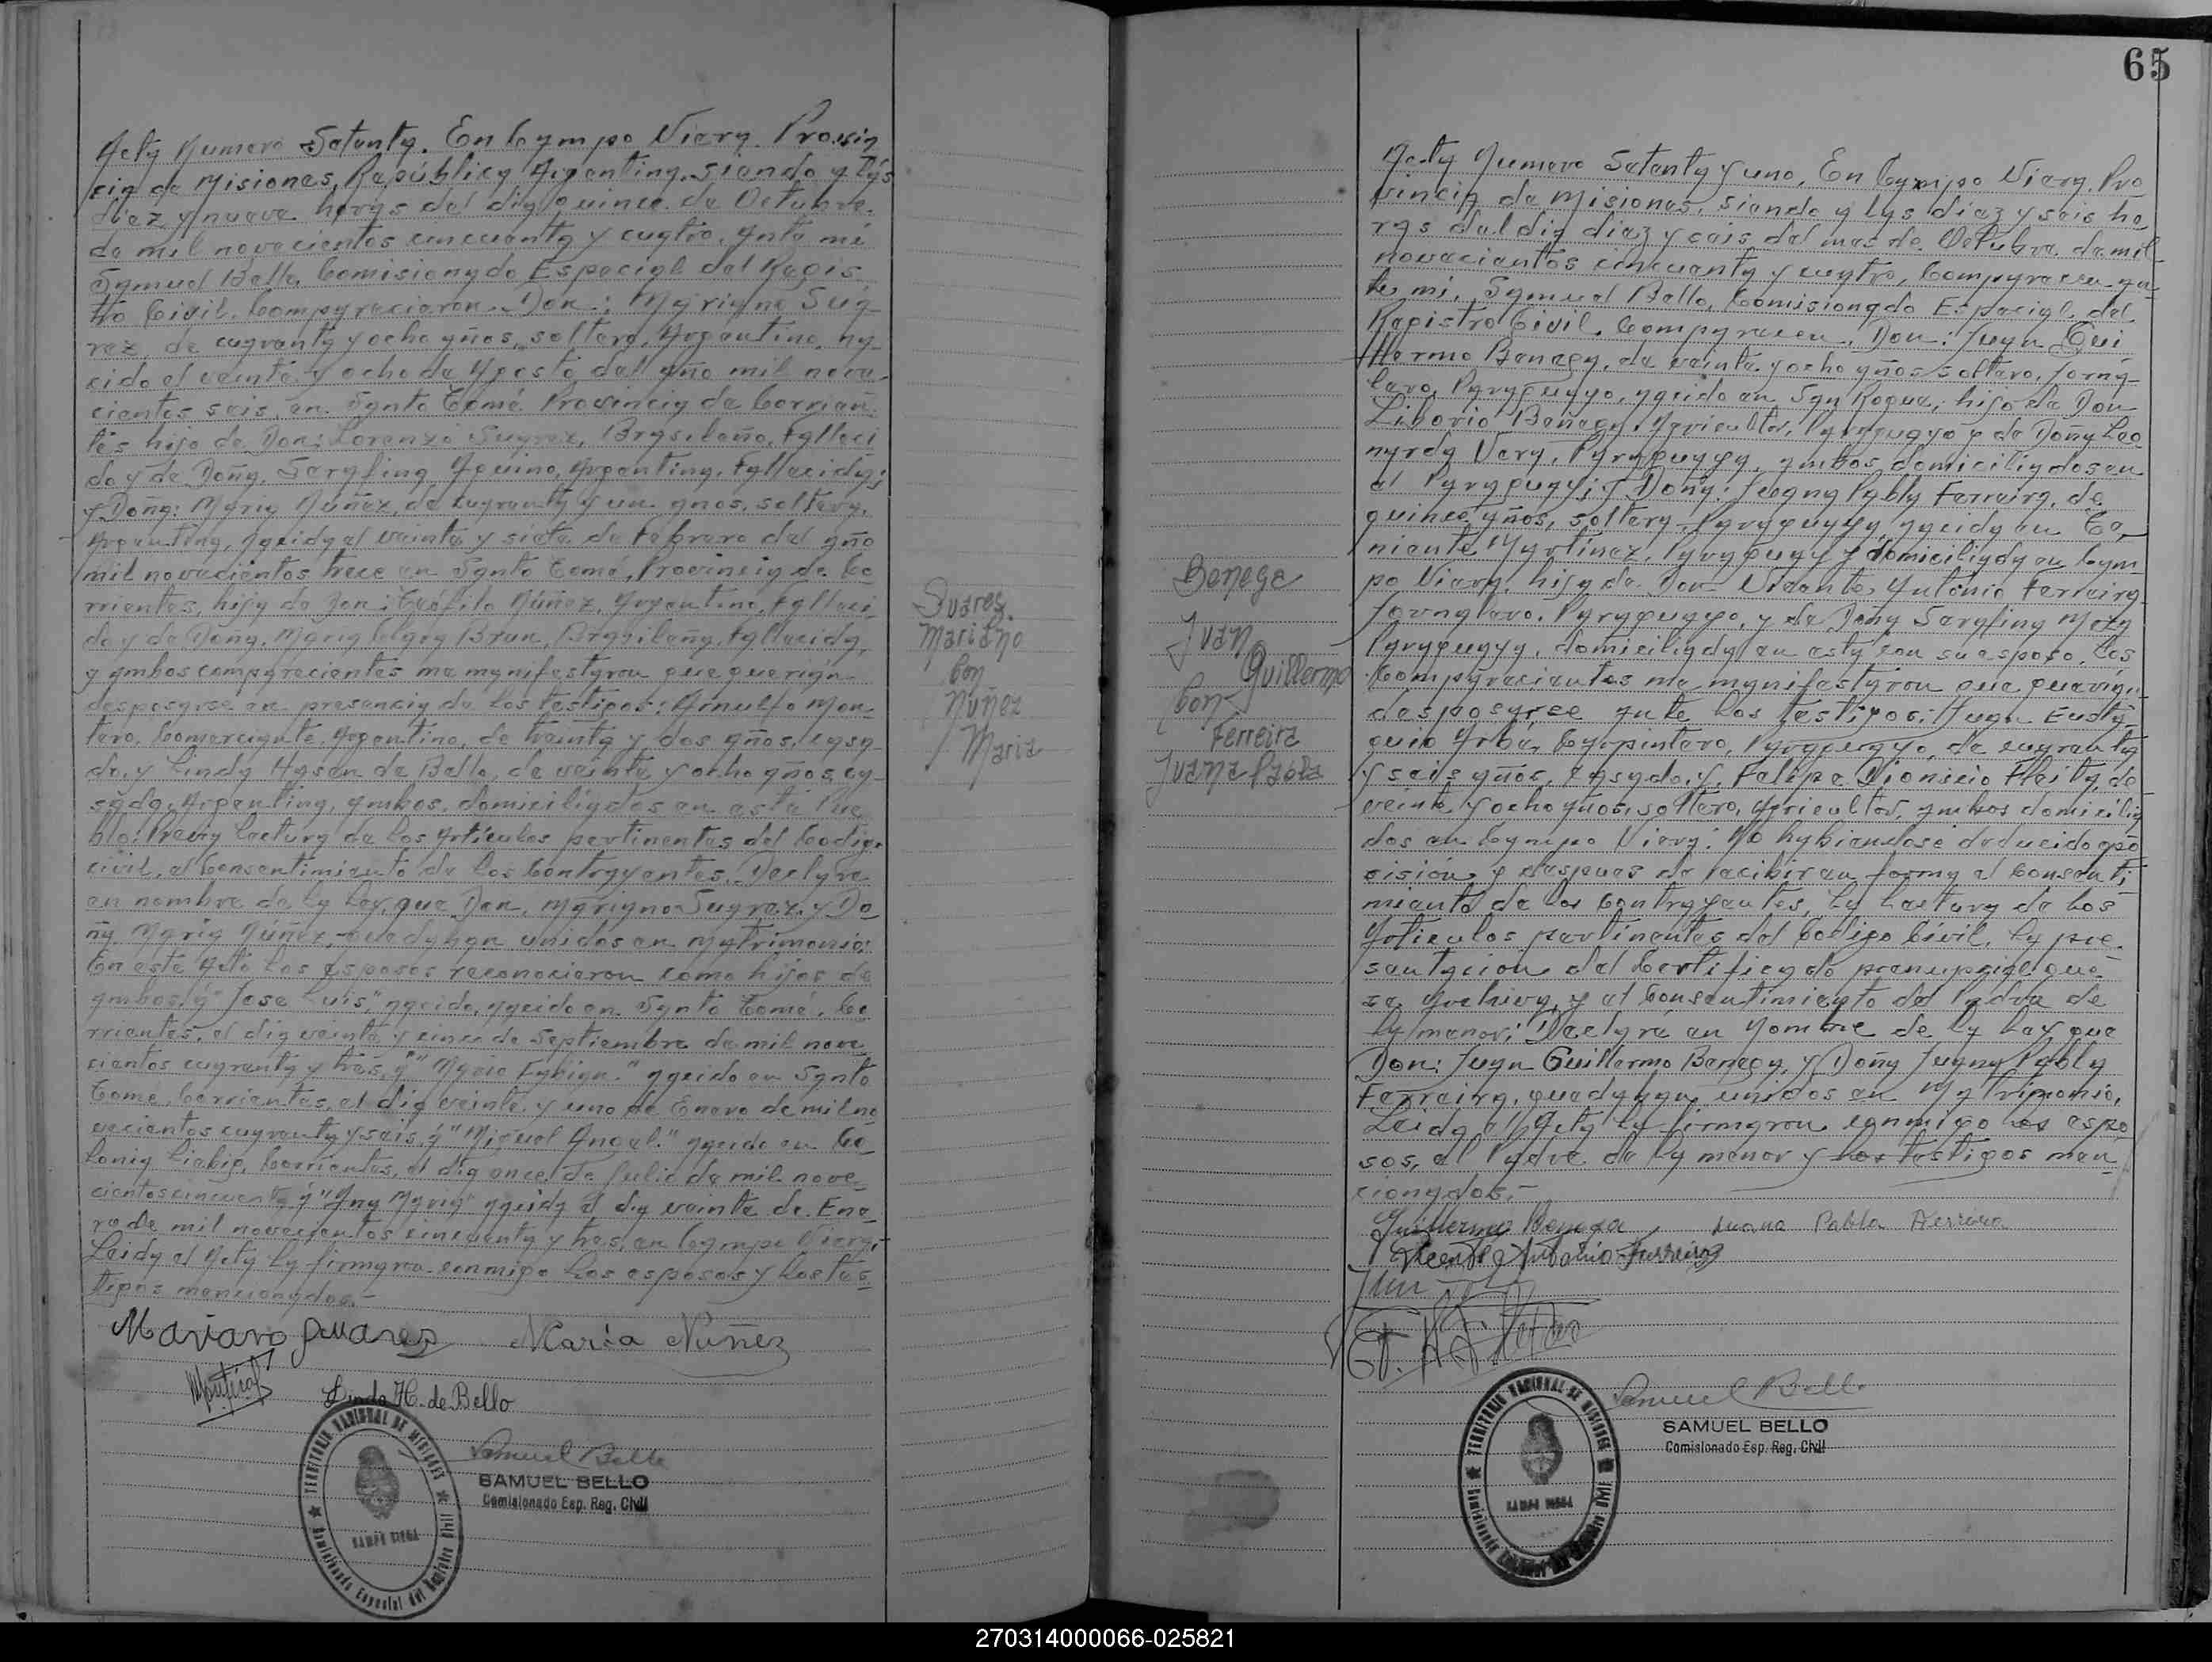 Acta Numero Setenta. En Campo Viera. Provin
cia de Misiones, República Argentina. siendo a lás
diez y nueve horas del dia quince de Octubre.
de mil novecientos cincuenta y cuatro, ante mi
Samuel Bello, Comisionado Especial del Regis
tro Civil. Comparecieron. Don: Mariano Suá-
rez, de cuarenta y ocho años, soltero, Argentino, na-
cido el veinte y ocho de Agosto del año mil nove-
cientos seis, en Santo Tomé Provincia de Corrien
tés hijo de Don: Lorenzo Suarez, Brasileño, Falleci
do y de Doña. Sarafina Aquino, Argentina, Fallecida;
y Doña: Maria Núñez, de cuarenta y un años, soltera,
Argentina, nacida el veinte y siete de Febrero del año
mil novecientos trece en Santo Tomé, Provincia de Co
rrientes, hija de Don: Teófilo Núñez, Argentino, Falleci
do y de Doña, Maria Clara Brun, Brasileña, Fallecida,
y ambos comparecientes me manifestaron que querian
desposarse en presencia de los testigos: Arnulfo Mon-
tero, Comerciante, Argentino, de treinta y dos años, casa
do, y Linda Hysen de Bello, de veinte y ocho años, ca-
sada, Argentina, ambos, domiciliados en este Pue
blo: Previa Lectura de los Artículos pertinentes del Codigo
civil, el Consentimiento de los Contrayentes. Declare
en nombre de la Ley, que Don, Mariano Suarez, y Do
ña Maria Núñez, quedaban unidos en Matrimonio:
En este Acto los esposos reconocieron como hijos de
ambos, á "Jose Luis", nacido, nacido en Santo Tomé, Co
rrientes, el dia veinte y cinco de Septiembre de mil nove
cientos cuarenta y tres, á "Mario Fabian" nacido en Santo
Tome, Corrientes, el dia veinte y uno de Enero de mil no
vecientos cuarenta y seis, á "Miguel Angel." nacido en Co
lonia Liebig, Corrientes, el dia once de Julio de mil nove-
cientos cincuenta y "Ana Maria" nacida el dia veinte de Ene-
ro de mil novecientos cincuenta y tres, en Campo Viera,-
Leida el Acta la firmaron conmigo los esposos y los tes
tigos mencionados.-
Mariano Suarez María Nuñez
Montero
Linda H. de Bello
Samuel Bello
SAMUEL BELLO
Comisionado Esp. Reg. Civil
TERRITORIO NACIONAL DE MISIONES
CAMPO VIERA
Comisionado Especial del Registro Civil
Suarez
Mariano
Con
Nuñez
Maria
65
Acta Numero Setenta y uno, En Campo Viera. Pro
vincia de Misiones, siendo a las diez y seis ho
ras del dia diez y ceis del mes de Octubre de mil
novecientos cincuenta y cuatro, Comparecen an-
te mi, Samuel Bello, Comisionado Especial del
Registro Civil. Comparecen. Don: Juan Gui
llermo Benega, de veinte y ocho años soltero, Jorna-
lero, Paraguayo, nacido en San Roque, hijo de Don
Liborio Benega, Agricultor, Paraguayo y de Doña Leo
narda Vera, Paraguaya, ambos domiciliados en
el Paraguay; y Doña: Juana Pabla Ferreira, de
quince años, soltera, Paraguaya, nacida en Te-
niente Martinez, Paraguay y domiciliada en Cam-
po Viera, hija de Don Vicente Antonio Ferreira
Jornalero, Paraguayo, y de Doña Sarafina Meza
Paraguaya, domiciliada en esta con su esposo, Los
Comparecientes me manifestaron que querian
desposarce ante Los testigos: Juan Eusta-
quio Arbe, Carpintero, Paraguayo, de cuarenta
y seis años, casado, y Felipe Dionicio Fleita, de
veinte y ocho años, soltero, Agricultor, ambos domicilia
dos en Campo Viera: No habiendose deducido opo
cision y despues de recibir en forma el Consenti
miento de los Contrayentes, La Lectura de los
Articulos pertinentes del Codigo Civil, la pre-
sentacion del Certificado prenupcial que
se Archiva, y el Consentimiento del Padre de
la menor: Declaré en Nombre de la Ley que
Don: Juan Guillermo Benega, y Doña Juana Pabla
Ferreira, quedaban unidos en Matrimonio,
Leida el Acta la firmaron conmigo los espo
sos, el Padre de la menor y los testigos men
cionados.-
Guillermo Benega Juana Pabla Ferreira
Vicente Antonio Ferreira
Juan
Samuel Bello
SAMUEL BELLO
Comisionado Esp. Reg. Civil
TERRITORIO NACIONAL DE MISIONES
CAMPO VIERA
Comisionado Especial del Registro Civil
Benega
Juan
Guillermo
Con
Ferreira
Juana Pabla
270314000066-025821